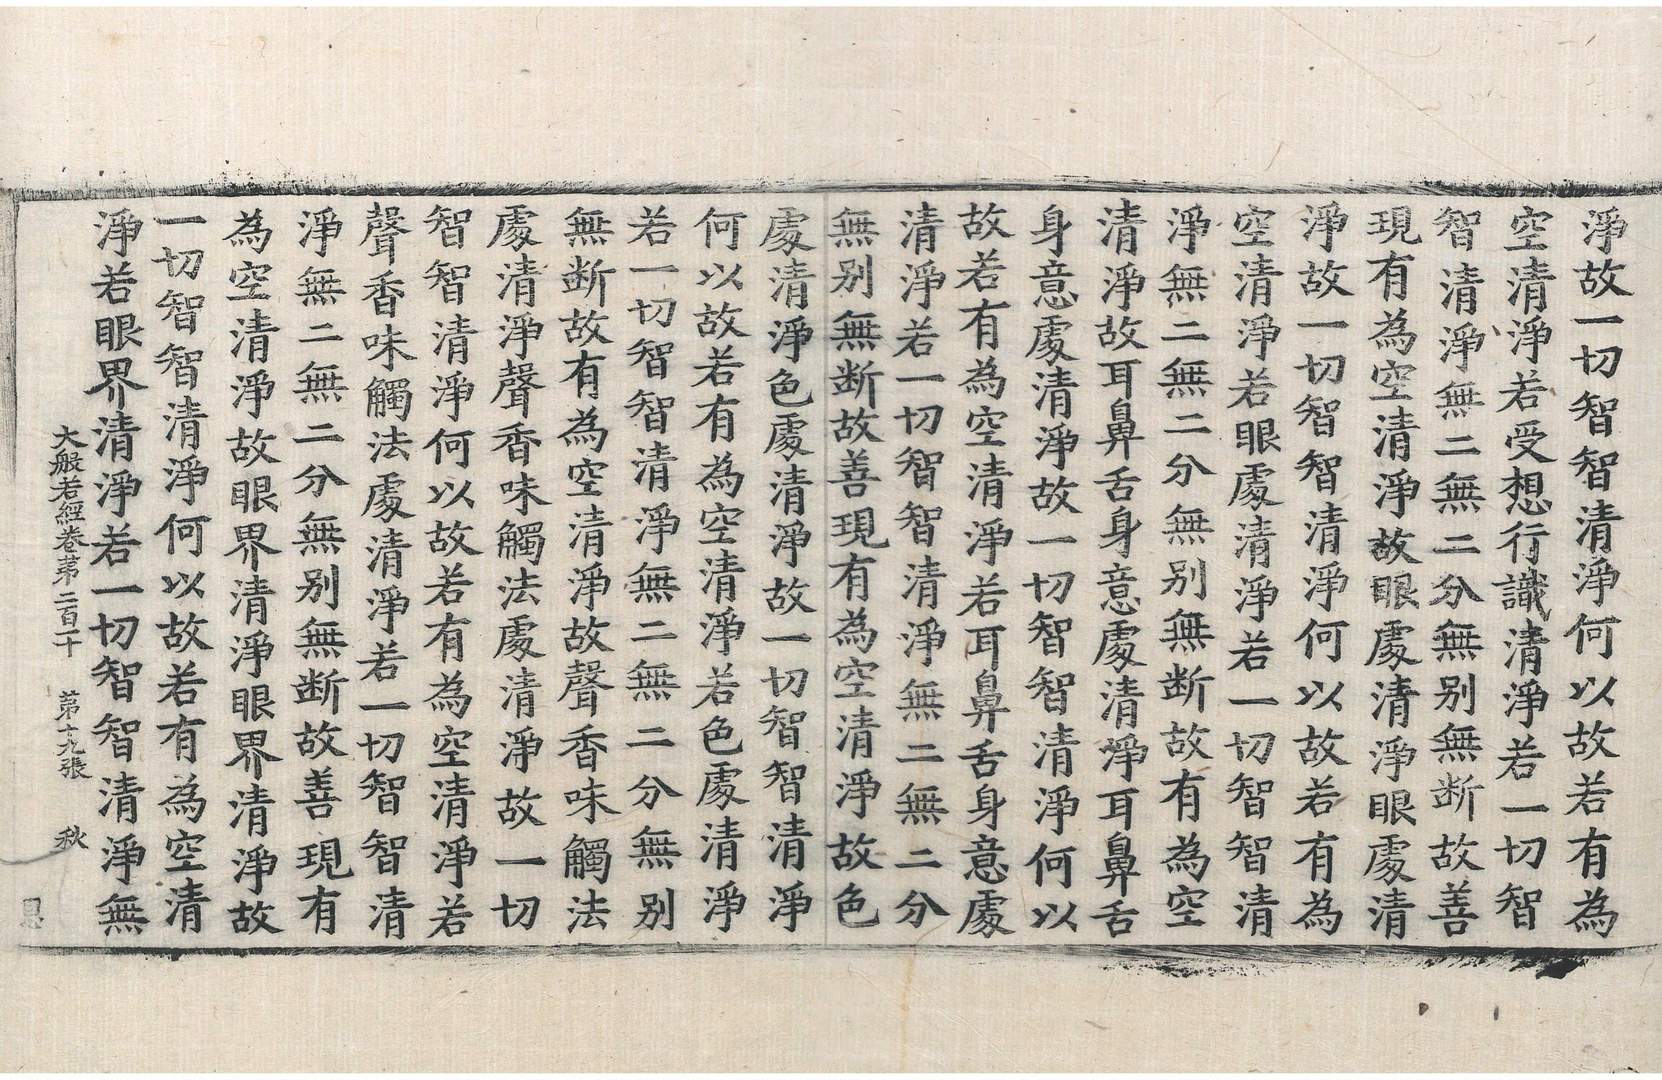 淨故一切智智清淨何以故若有為
空清淨若受想行識清淨若一切智
智清淨無二無二分無别無断故善
現有為空清淨故眼處清淨眼處清
淨故一切智智清淨何以故若有為
空清淨若眼處清淨若一切智智清
淨無二無二分無别無断故有為空
清淨故耳鼻舌身意處清淨耳鼻舌
身意處清淨故一切智智清淨何以
故若有為空清淨若耳鼻舌身意處
清淨若一切智智清淨無二無二分
無别無断故善現有為空清淨故色
處清淨色處清淨故一切智智清淨
何以故若有為空清淨若色處清淨
若一切智智清淨無二無二分無别
無断故有為空清淨故聲香味觸法
處清淨聲香味觸法處清淨故一切
智智清淨何以故若有為空清淨若
聲香味觸法處清淨若一切智智清
淨無二無二分無别無断故善現有
為空清淨故眼界清淨眼界清淨故
一切智智清淨何以故若有為空清
淨若眼界清淨若一切智智清淨無
大般若經卷苐二百一十 苐十九張 秋